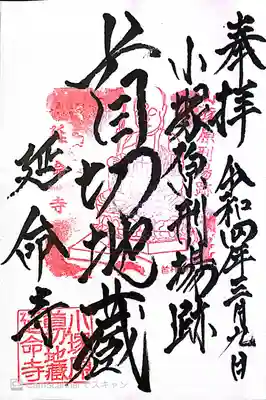 奉拝
令和四年三月九日
小塚原刑場跡
首切地蔵
延命寺
小塚原
首切地蔵
延命寺
でスキャン